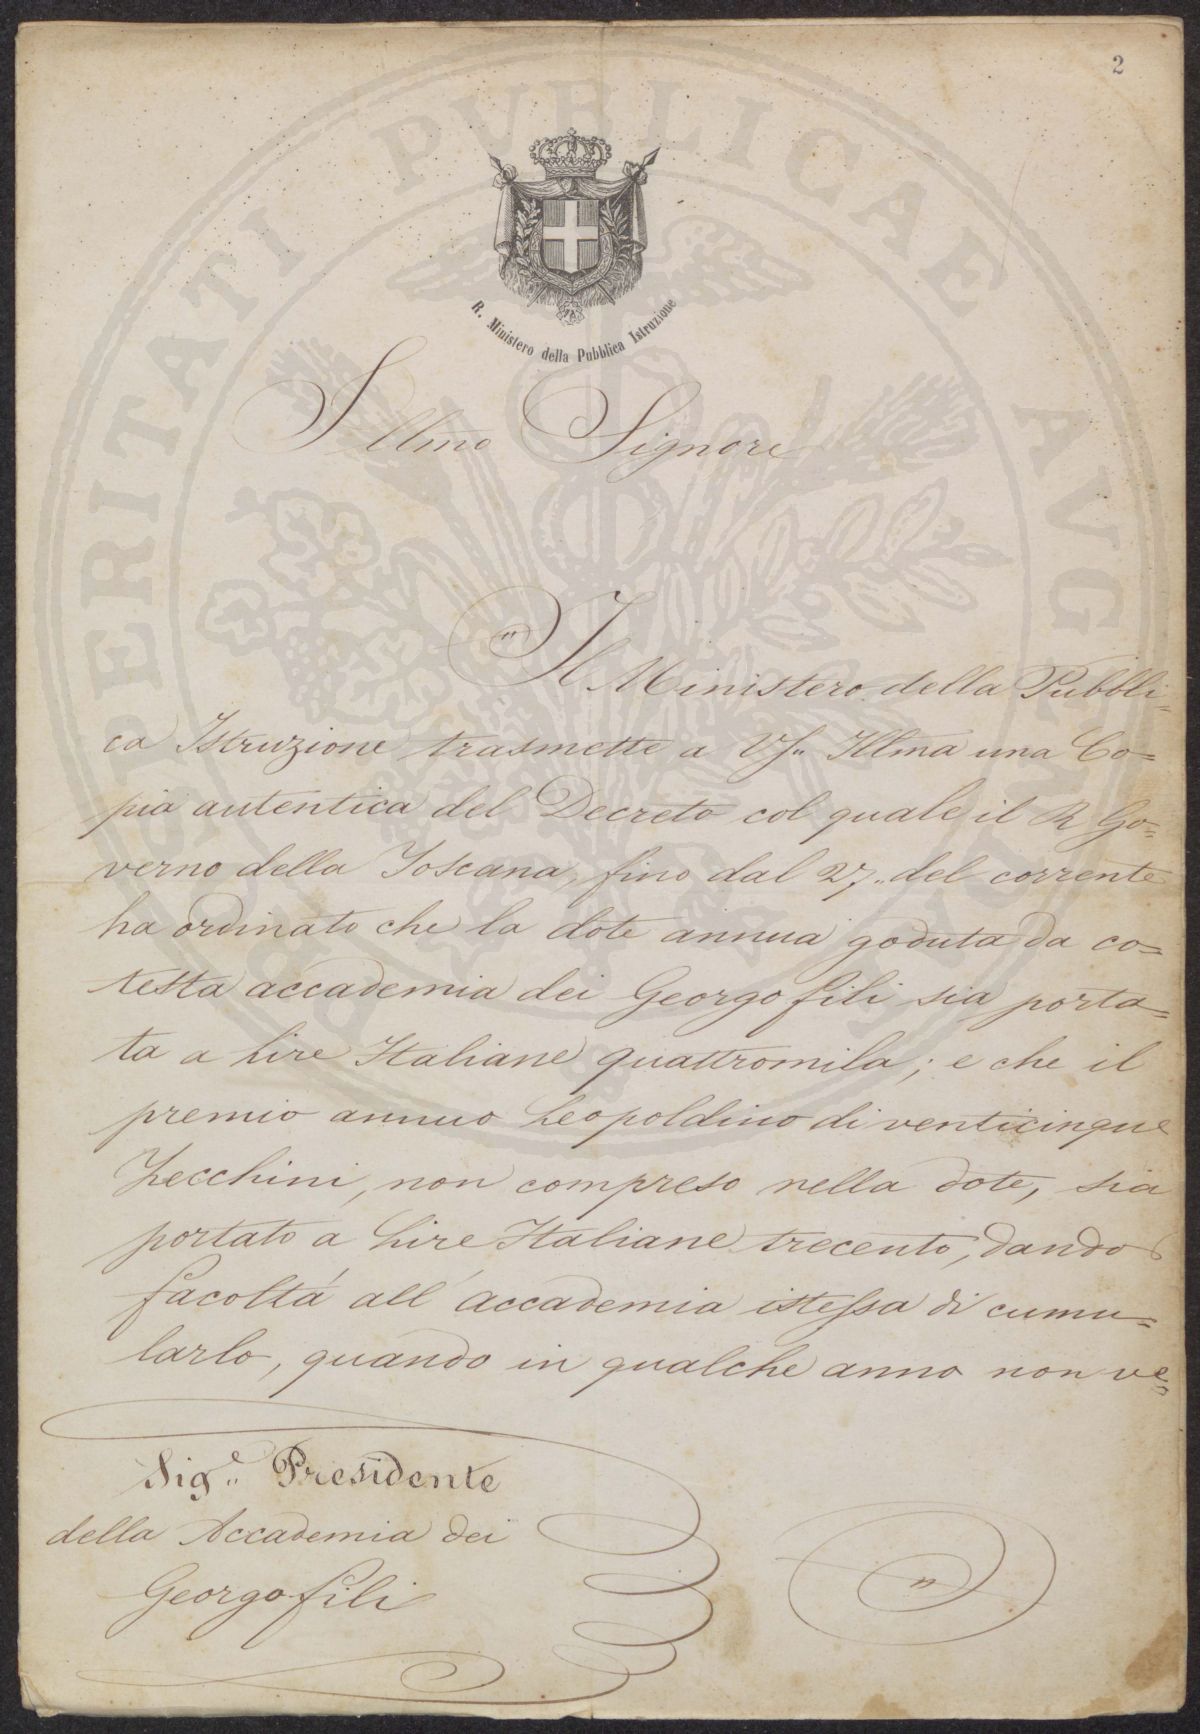 2
R. Ministero della Pubblica Istruzione
Illmo Signore
Il Ministero della Pubbli=
ca Istruzione trasmette a VS" Illma una Co=
pia autentica del Decreto col quale il R Go=
verno della Toscana, fino dal 27" del corrente
ha ordinato che la dote annua goduta da co=
testa accademia dei Georgofili sia porta=
ta a Lire Italiane quattromila; e che il
premio annuo Leopoldino di venticinque
Zecchini, non compreso nella dote, sia
portato a Lire Italiane trecento, dando
facoltá all' accademia istessa di cumu=
larlo, quando in qualche anno non ve=
Sig.e Presidente
della Accademia dei
Georgofili
PROSPERITATI PVBLICAE AVGENDAE